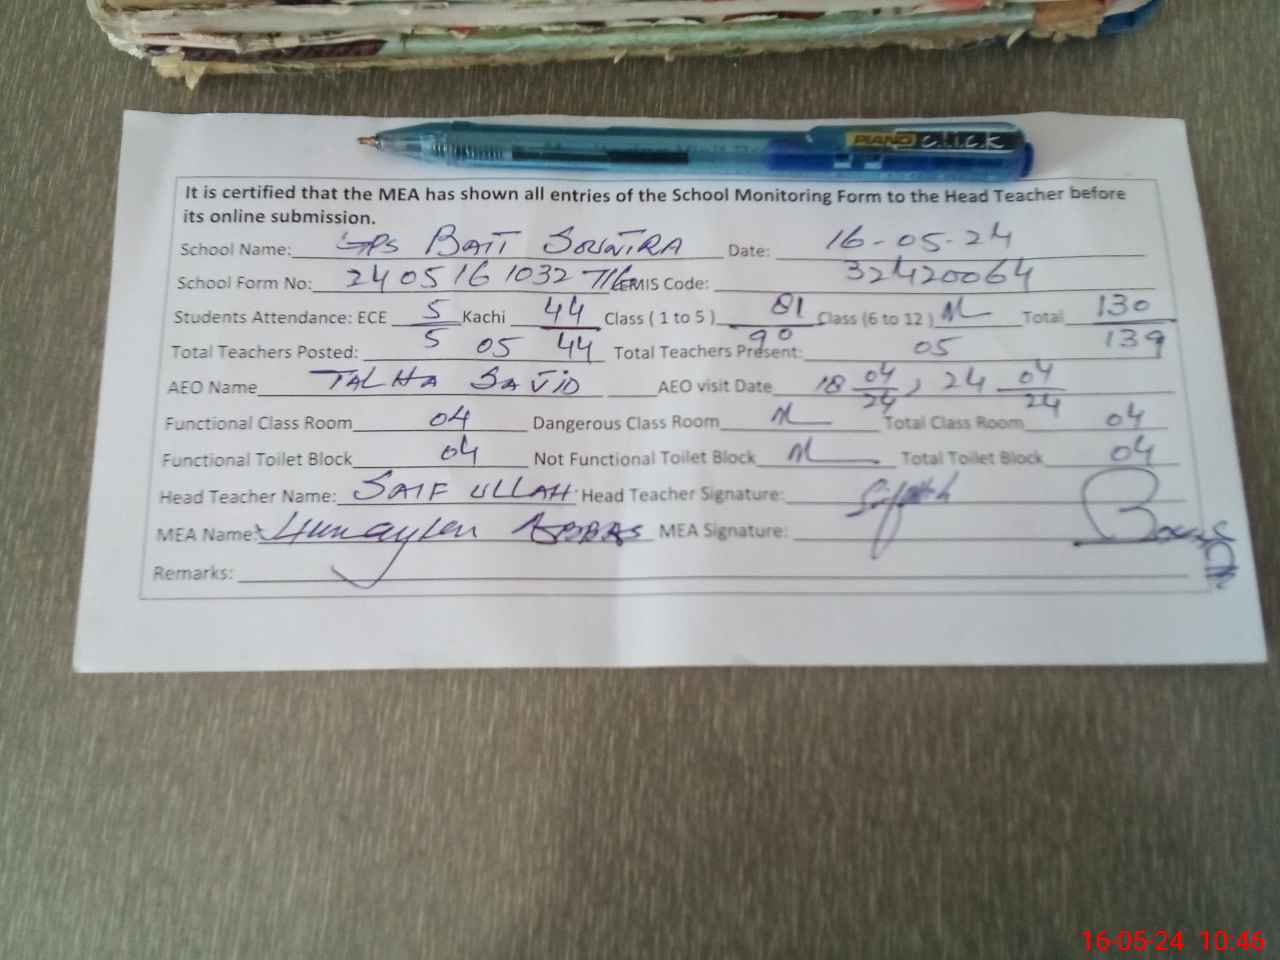 PIANO C.l.i.c.k
It is certified that the MEA has shown all entries of the School Monitoring Form to the Head Teacher before
its online submission.
School Name: GPS BAIT SOUNTRA Date: 16-05-24
School Form No: 24 05 16 1032 716 EMIS Code: 32420064
Students Attendance: ECE 5/5 Kachi 44/44 Class ( 1 to 5 ) 81/90 Class (6 to 12) Total 130/139
Total Teachers Posted: 05 Total Teachers Present: 05
AEO Name TALHA SAVID AEO visit Date 18 04/24, 24 04/24
Functional Class Room 04 Dangerous Class Room Total Class Room 04
Functional Toilet Block 04 Not Functional Toilet Block Total Toilet Block 04
Head Teacher Name: SAIF ULLAH Head Teacher Signature:
MEA Name: ABBAS MEA Signature:
Remarks:
16-05-24 10:46